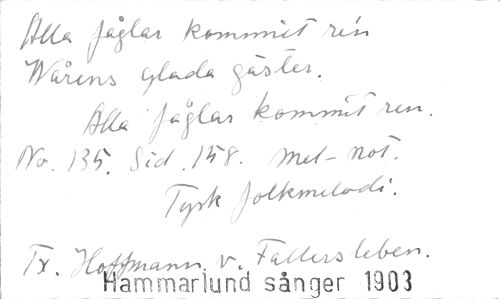 Alla fåglar kommit re'n
Wårens glada gäster.
Alla fåglar kommit ren.
No. 135. Sid. 158. Mel-not.
Tysk folkmelodi.
Tx. Hoffmann v. Fallersleben.
Hammarlund sånger 1903